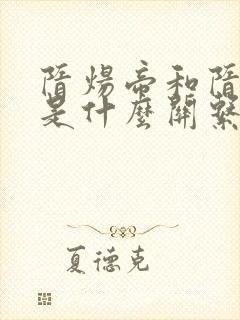 隋煬帝和隋
是什麼關繫
夏德克